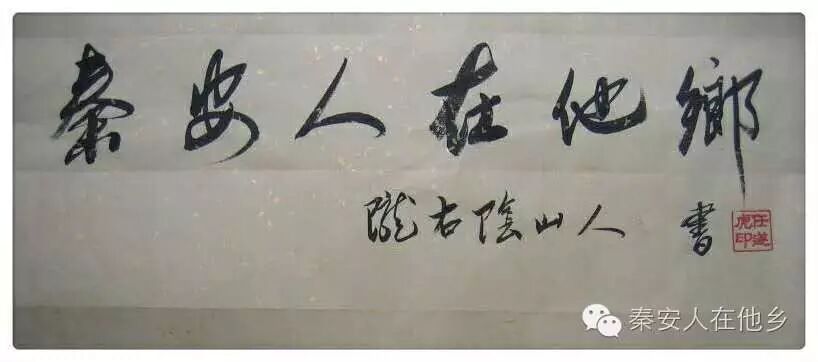 秦安人在他鄉
隴右陰山人 書
任遂虎印
秦安人在他乡